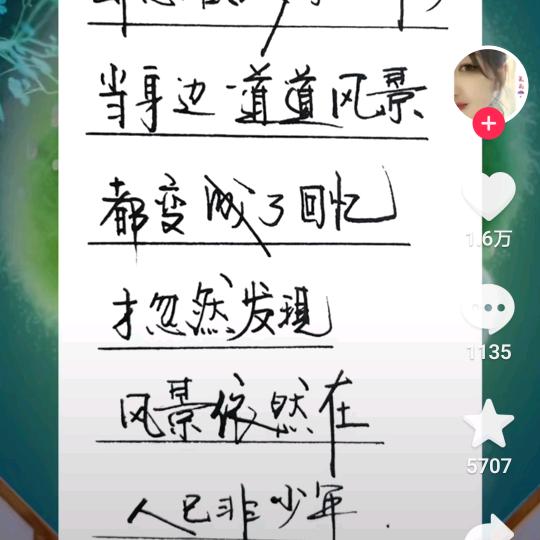 当身边一道道风景
都变成了回忆
才忽然发现
风景依然在
人已非少年.
1.6万
1135
5707